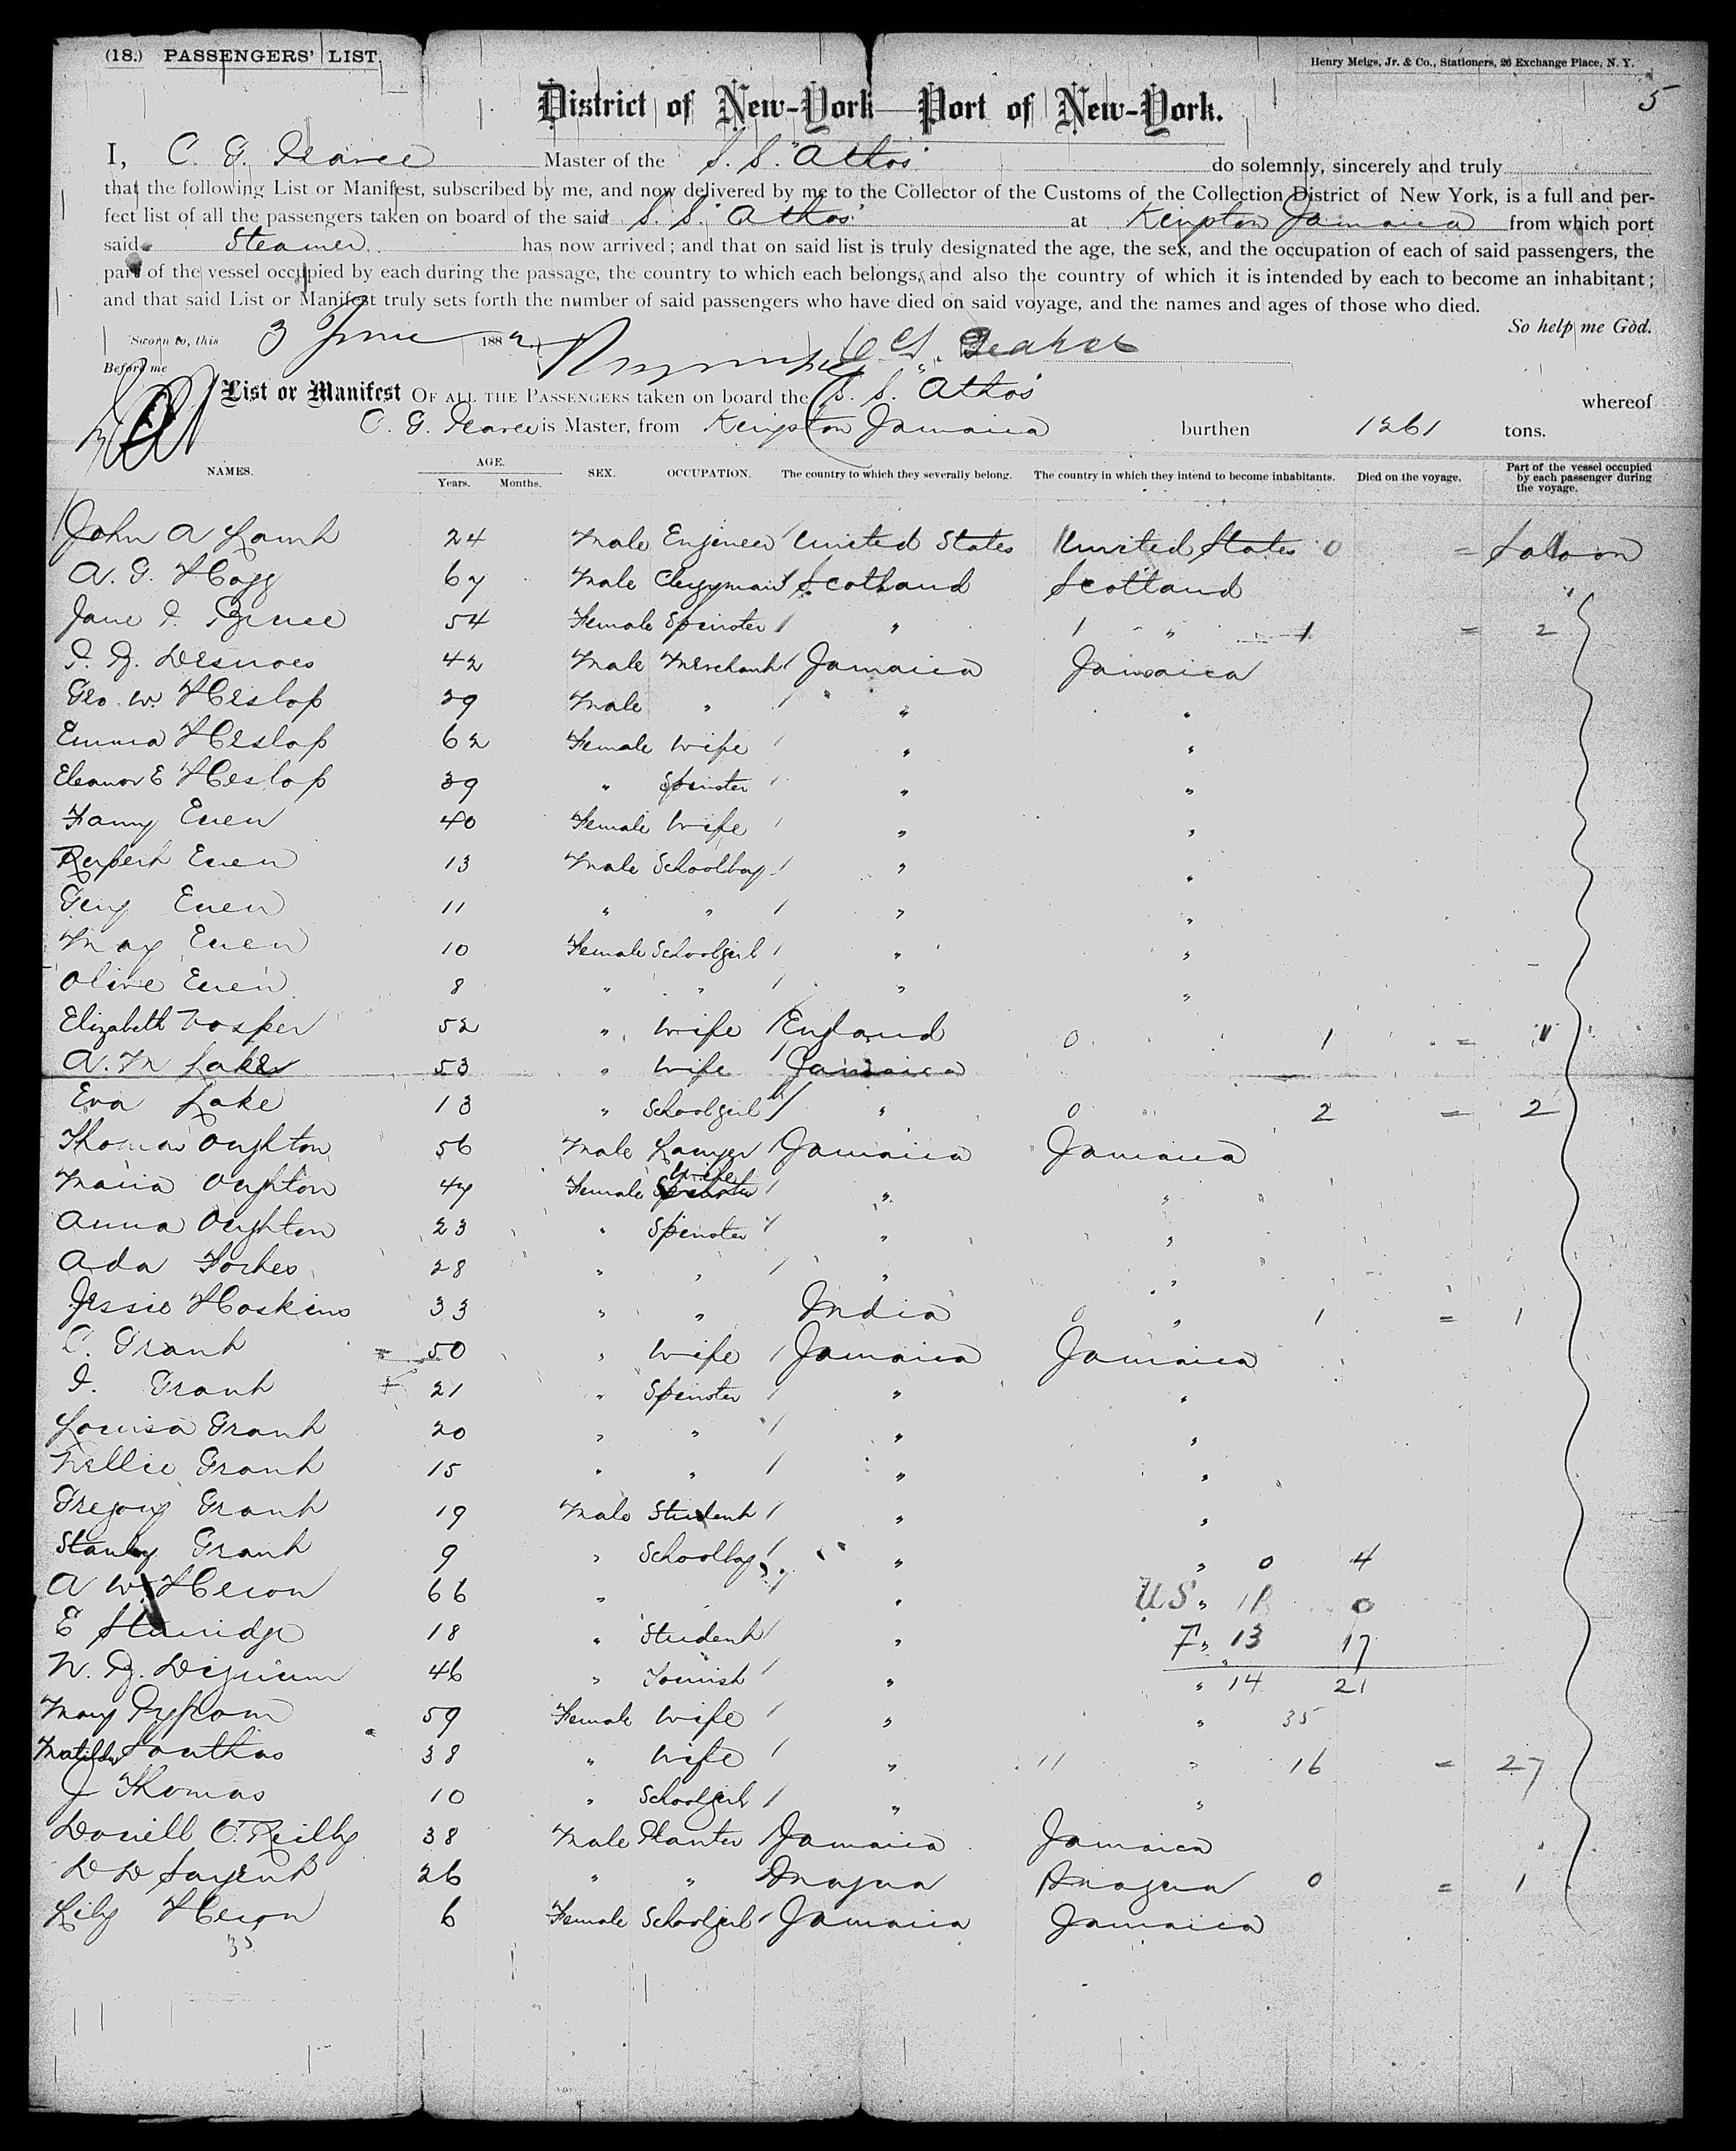 (18.) PASSENGERS' LIST.
Henry Meigs, Jr. & Co., Stationers, 26 Exchange Place, N. Y.
5
District of New-York—Port of New-York.
I, C. G. Pearce Master of the S. S. "Athos" do solemnly, sincerely and truly
that the following List or Manifest, subscribed by me, and now delivered by me to the Collector of the Customs of the Collection District of New York, is a full and per-
fect list of all the passengers taken on board of the said S. S. "Athos" at Kingston Jamaica from which port
said Steamer has now arrived; and that on said list is truly designated the age, the sex, and the occupation of each of said passengers, the
part of the vessel occupied by each during the passage, the country to which each belongs, and also the country of which it is intended by each to become an inhabitant;
and that said List or Manifest truly sets forth the number of said passengers who have died on said voyage, and the names and ages of those who died.
So help me God.
Sworn to, this 3 June 1882 C G. Pearce
Before me
List or Manifest OF ALL THE PASSENGERS taken on board the S. S. "Athos" whereof
C. G. Pearce is Master, from Kingston Jamaica burthen 1261 tons.
NAMES. AGE. Years. Months. SEX. OCCUPATION. The country to which they severally belong. The country in which they intend to become inhabitants. Died on the voyage. Part of the vessel occupied by each passenger during the voyage.
John A Lamb 24 Male Engineer United States United States 0 = Saloon
A. G. Hogg 67 Male Clergyman Scotland Scotland "
Jane P. Bruce 54 Female Spinster " 1 " 1 = 2
P. B. Desnoes 42 Male Merchant Jamaica Jamaica
Geo. W. Heslop 29 Male " " "
Emma Heslop 62 Female Wife " "
Eleanor E Heslop 39 " Spinster " "
Fanny Ewen 40 Female Wife " "
Ewen 13 Male Schoolboy " "
Ewen 11 " " " "
May Ewen 10 Female Schoolgirl " "
Olive Ewen 8 " " " "
Elizabeth Vosper 52 " Wife England 0 1 = 1
A. M Lake 53 " Wife Jamaica
Eva Lake 13 " Schoolgirl " 0 " 2 = 2
Thomas Oughton 56 Male Lawyer Jamaica Jamaica
Maria Oughton 47 Female Wife " "
Anna Oughton 23 " Spinster " "
Ada Forbes 28 " " " "
Jessie Hoskins 33 " " India 0 " 1 = 1
C. Grant 50 " Wife Jamaica Jamaica
I. Grant 21 " Spinster " "
Louisa Grant 20 " " " "
Nellie Grant 15 " " " "
Gregory Grant 19 Male Student " "
Stanley Grant 9 " Schoolboy " " 0 4
A W. Heron 66 " " US " 18 0
E 18 " Student " F " 13 17
46 " Tourist " " 14 21
Mary 59 Female Wife " " 35
Matilda 38 " Wife " 11 " 16 = 27
J Thomas 10 " Schoolgirl " "
Daniell O'Reilly 38 Male Planter Jamaica Jamaica
D D Sargent 26 " " Inagua Inagua 0 = 1
Lily Heron 6 Female Schoolgirl Jamaica Jamaica
35